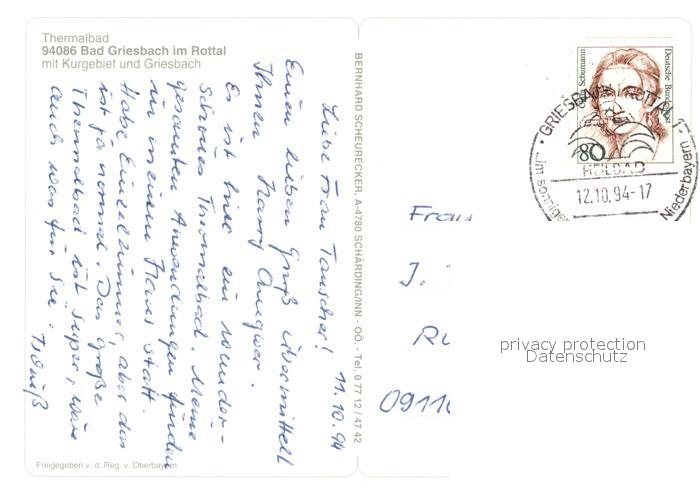 Thermalbad
94086 Bad Griesbach im Rottal
mit Kurgebiet und Griesbach
11.10.94
Liebe Frau Tauscher!
Einen lieben Gruß übermittelt
Ihnen Harry
Es ist hier ein wunder-
schönes Thermalbad. Meine
gesamten Anwendungen finden
nur in meinem Haus statt.
Habe Einzelzimmer, aber das
ist ja normal. Das große
Thermalbad ist super, wäre
auch was für Sie.
Tschüß
Freigegeben v. d. Reg. v. Oberbayern
BERNHARD SCHEURECKER, A-4780 SCHÄRDING/INN - OÖ. - Tel. 0 77 12 / 47 42
Deutsche Bundespost
Schumann
80
GRIESBACH
HEILBAD
12.10.94-17
im sonnigen
Niederbayern
Frau
J.
0911
privacy protection
Datenschutz